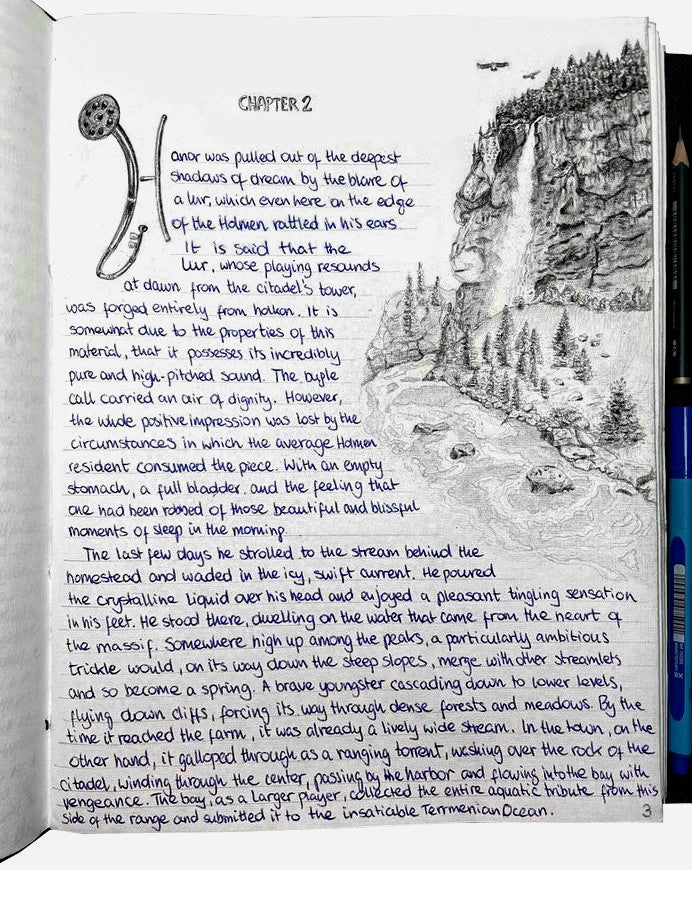 CHAPTER 2
Hanor was pulled out of the deepest
shadows of dream by the blare of
a lur, which even here on the edge
of the Holmen rattled in his ears
It is said that the
lur, whose playing resounds
at dawn from the citadel's tower,
was forged entirely from holkon. It is
somewhat due to the properties of this
material, that it possesses its incredibly
pure and high-pitched sound. The bugle
call carried an air of dignity. However,
the whole positive impression was lost by the
circumstances in which the average Holmen
resident consumed the piece. With an empty
stomach, a full bladder, and the feeling that
one had been robbed of those beautiful and blissful
moments of sleep in the morning
The last few days he strolled to the stream behind the
homestead and waded in the icy, swift current. He poured
the crystalline liquid over his head and enjoyed a pleasant tingling sensation
in his feet. He stood there, dwelling on the water that came from the heart of
the massif. Somewhere high up among the peaks, a particularly ambitious
trickle would, on its way down the steep slopes, merge with other streamlets
and so become a spring. A brave youngster cascading down to lower levels,
flying down cliffs, forcing its way through dense forests and meadows. By the
time it reached the farm, it was already a lively wide stream. In the town, on the
other hand, it galloped through as a ranging torrent, washing over the rock of the
citadel, winding through the center, passing by the harbor and flowing into the bay with
vengeance. The bay, as a larger player, collected the entire aquatic tribute from this
side of the range and submitted it to the insatiable Terrmenian Ocean.
3